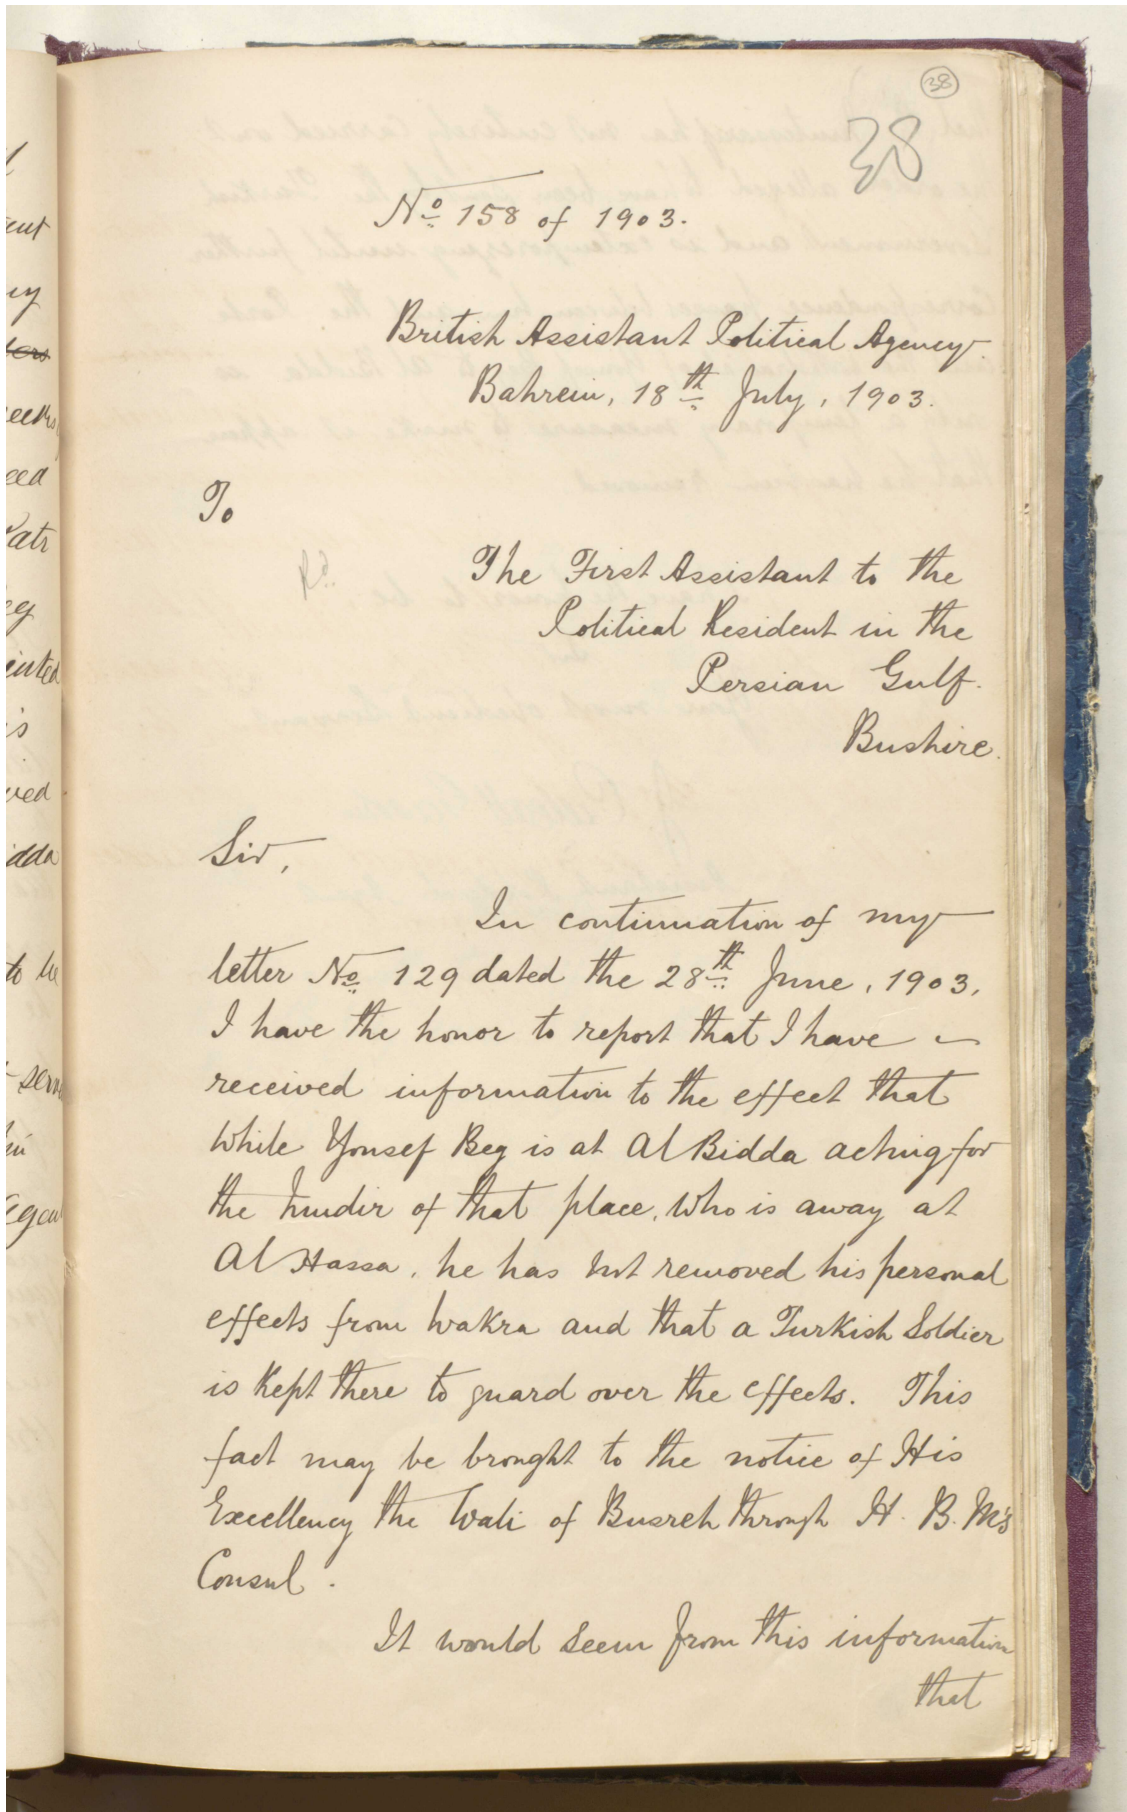 38
38
No 158 of 1903.
British Assistant Political Agency.
Bahrein, 18th July, 1903.
To
Rd.
The First Assistant to the
Political Resident in the
Persian Gulf.
Bushire.
Sir,
In continuation of my
letter No 129 dated the 28th June, 1903,
I have the honor to report that I have
received information to the effect that
while Yousef Beg is at Al Bidda acting for
the Mudir of that place, who is away at
Al Hassa, he has not removed his personal
effects from Wakra and that a Turkish Soldier
is kept there to guard over the effects. This
fact may be brought to the notice of His
Excellency the Wali of Busreh through H. B. M's
Consul.
It would seem from this information
that